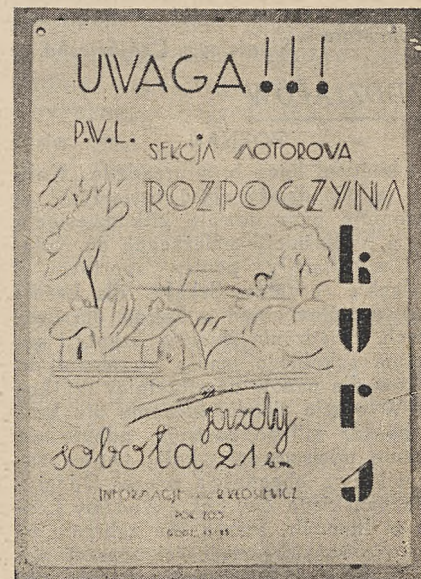 UWAGA!!!
P.W.L.
SEKCJA MOTOROWA
ROZPOCZYNA
kurs
jazdy
sobota 21 b.m.
INFORMACJE KŁOSIEWICZ
POK.
GODZ.